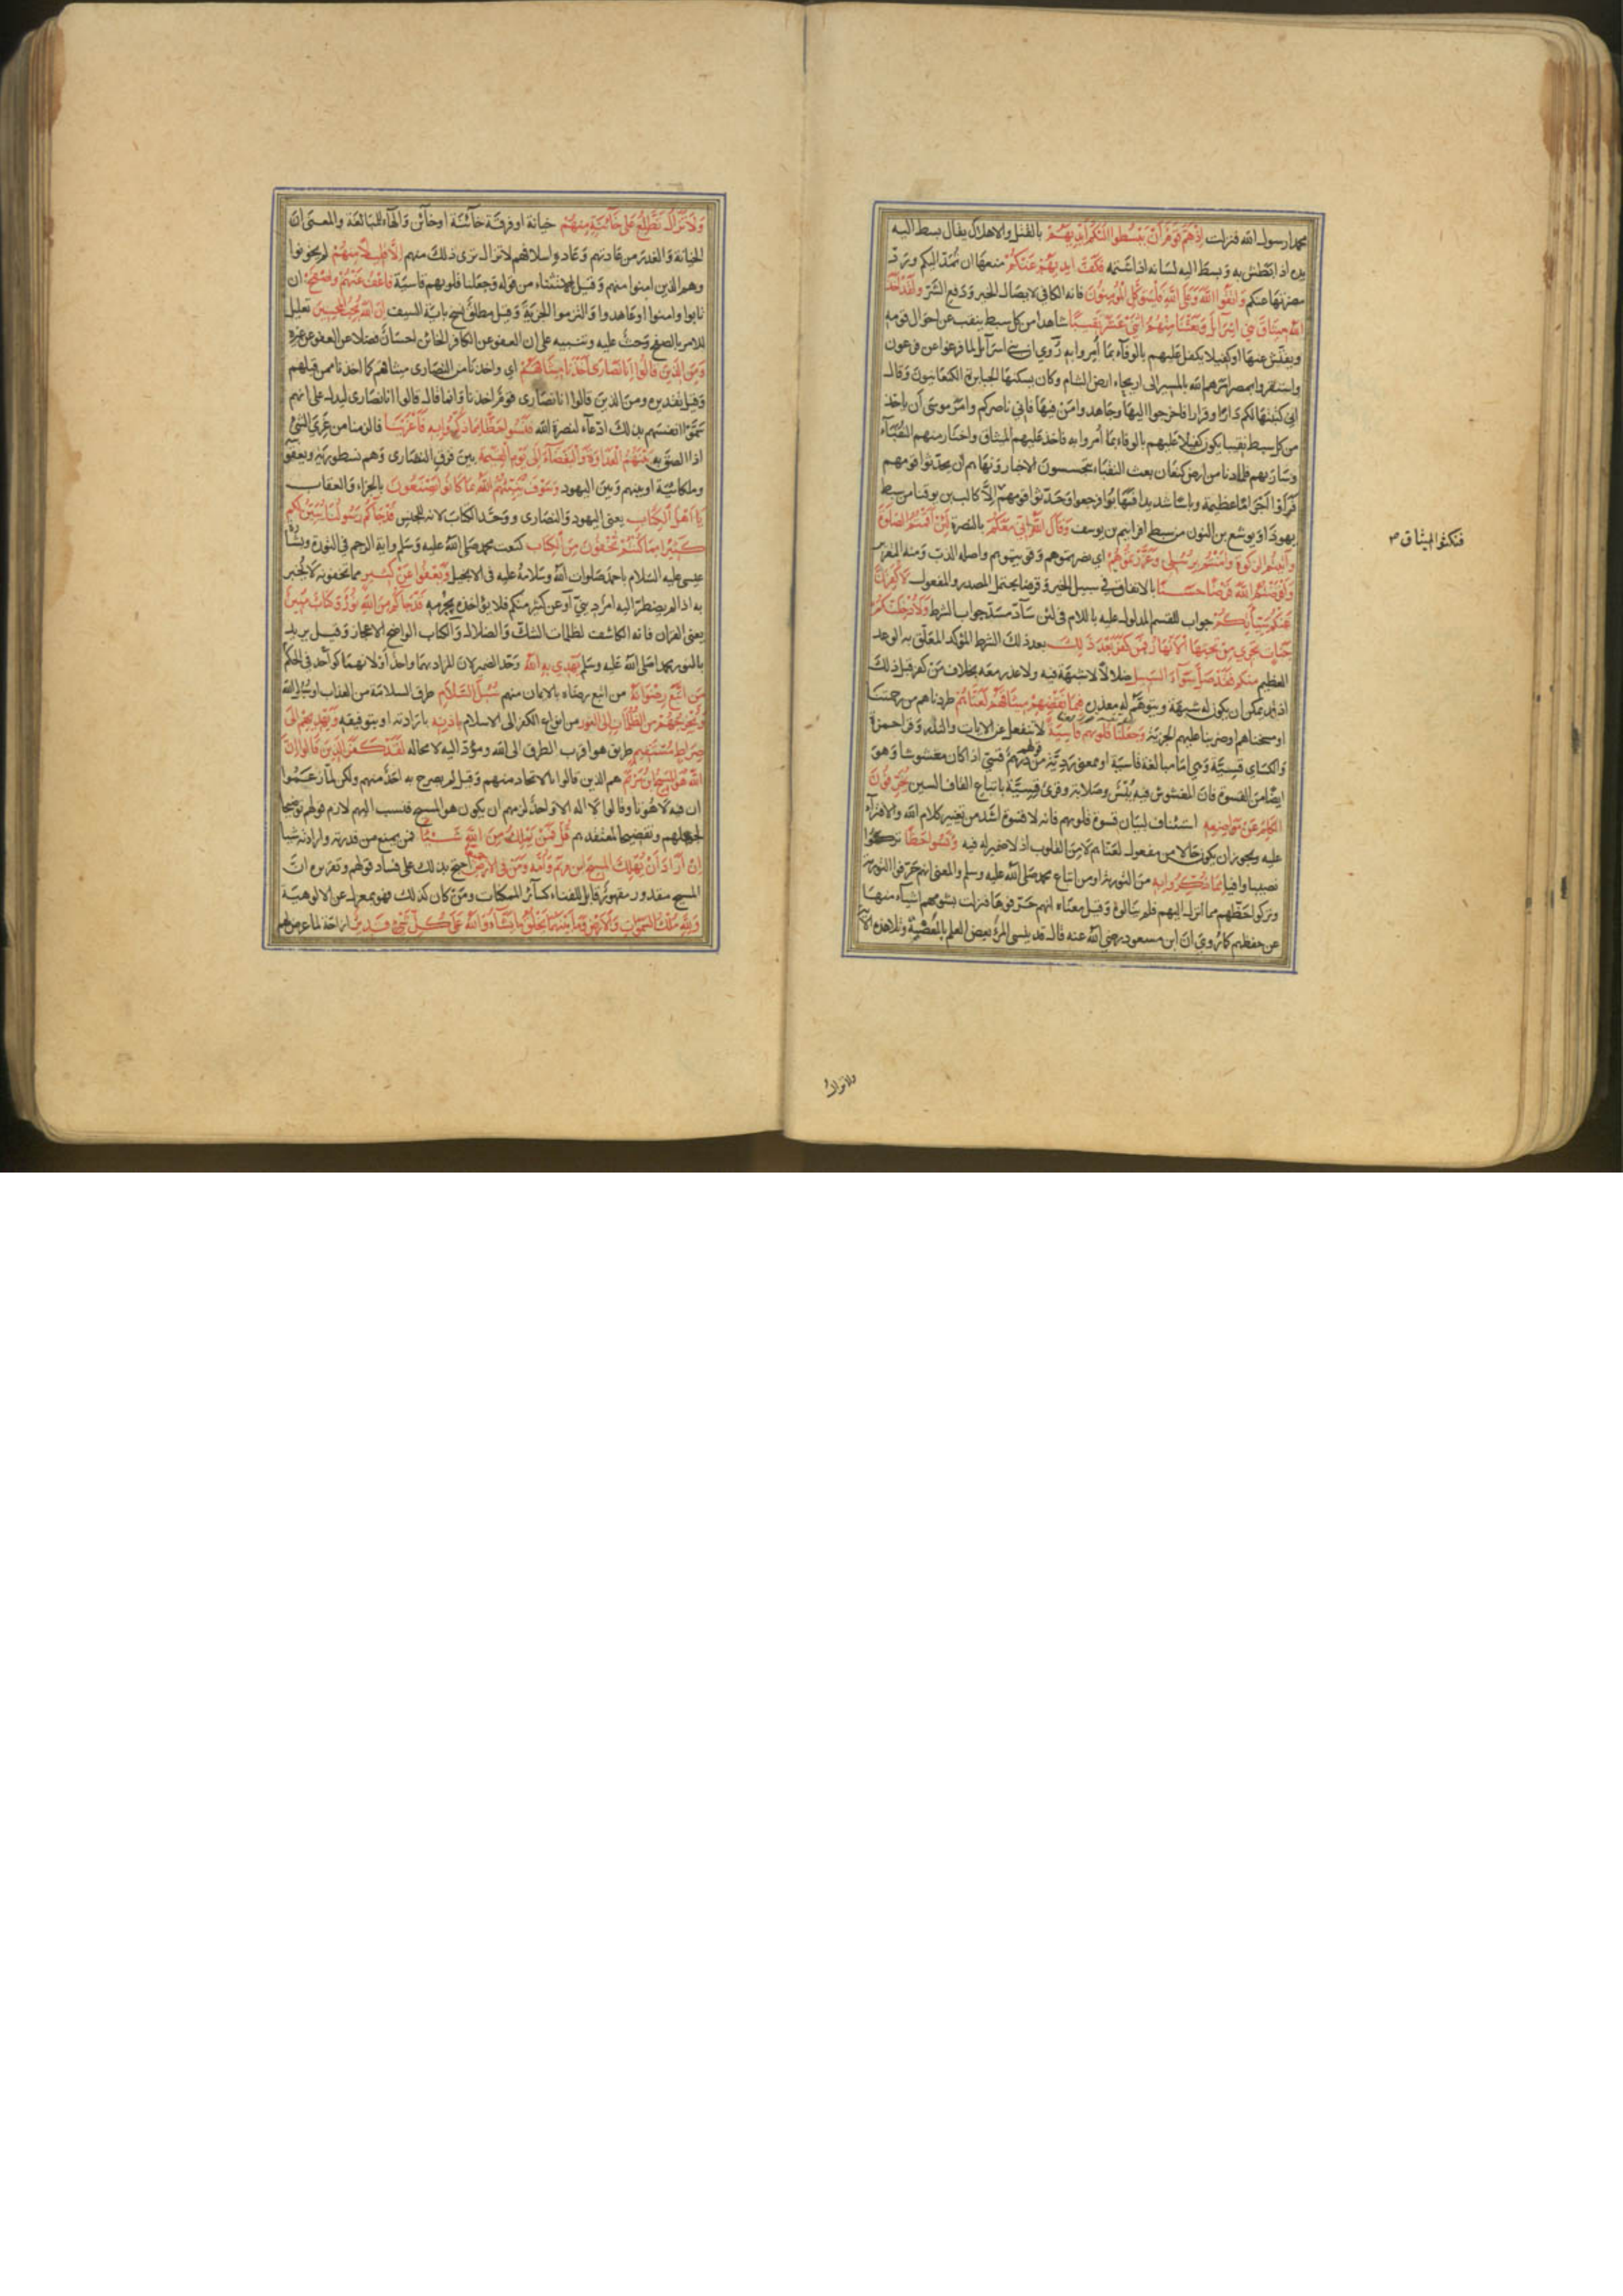 محمدا رسول الله فنزلت اذ هم قوم أن يبسطوا اليكم ايديهم بالقتل والاهلاك يقال بسط اليه
يده اذا بطش به وبسط اليه لسانه اذا شتمه فكف ايديهم عنكم منعها ان تمد اليكم ورد
مضرتها عنكم واتقوا الله وعلى الله فليتوكل المؤمنون فانه الكافي لايصال الخير ودفع الشر ولقد اخذ
الله ميثاق بني اسرآيل وبعثنا منهم اثني عشر نقيبا شاهدا من كل سبط ينقب عن احوال قومه
ويفتش عنها او كفيلا يكفل عليهم بالوفآء بما أمروا به روي ان بني اسرآيل لما فرغوا عن فرعون
واستقروا بمصر امرهم الله بالمسير الى اريحاء ارض الشام وكان يسكنها الجبابرة الكنعانيون وقال
اني كتبتها لكم دارا وقرارا فاخرجوا اليها وجاهدوا من فيها فاني ناصركم وامر موسى أن ياخذ
من كل سبط نقيبا يكون كفيلا عليهم بالوفاء بما أمروا به فاخذ عليهم الميثاق واختار منهم النقبآء
وسار بهم فلما دنا من ارض كنعان بعث النقباء يتجسسون الاخبار ونهاهم أن يحدثوا قومهم
فرأوا اجراما عظيمة وباسا شديدا فهابوا فرجعوا وحدثوا قومهم إلا كالب بن يوقنا من سبط
يهودا ويوشع بن النون من سبط افرائيم بن يوسف وقال الله إني معكم بالنصرة لئن أقمتم الصلوة
وآتيتم الزكوة وامنتم برسلي وعزرتموهم اي نصرتموهم وقويتموهم واصله الذب ومنه التعزير
واقرضتم الله قرضا حسنا بالانفاق في سبيل الخير وقرضا يحتمل المصدر والمفعول لاكفرن
عنكم سيئاتكم جواب للقسم المدلول عليه باللام في لئن ساد مسد جواب الشرط ولأدخلنكم
جنات تجري من تحتها الانهار فمن كفر بعد ذلك بعد ذلك الشرط المؤكد المعلق به الوعد
العظيم منكم فقد ضل سوآء السبيل ضلالا لا شبهة فيه ولا عذر معه بخلاف من كفر قبل ذلك
اذ قد يمكن ان يكون له شبهة ويتوهم له معذرة فبما نقضهم ميثاقهم لعناهم طردناهم من رحمتنا
او مسخناهم او ضربنا عليهم الجزية وجعلنا قلوبهم قاسية لا تنفعل عن الايات والنذر وقرا حمزة
والكساي قسية وهي اما مبالغة قاسية او بمعنى ردية من قولهم درهم قسي اذا كان مغشوشا وهو
ايضا من القسوة فان المغشوش فيه يبس وصلابة وقرئ قسية باتباع القاف السين يحرفون
الكلم عن مواضعه استئناف لبيان قسوة قلوبهم فانه لا قسوة اشد من تغيير كلام الله والافتراء
عليه ويجوز ان يكون حالا من مفعول لعناهم لا من القلوب اذ لا ضمير له فيه ونسوا حظا تركوا
نصيبا وافيا مما ذكروا به من التورية او من اتباع محمد صلى الله عليه وسلم والمعنى انهم حرفوا التورية
وتركوا حظهم مما انزل اليهم فلم ينالوه وقيل معناه انهم حرفوها فزلت بشومهم اشيآء منها
عن حفظهم كما روي ان ابن مسعود رضي الله عنه قال قد ينسى المرء بعض العلم بالمعصية وتلا هذه الآية
فنكثوا الميثاق
ولا تزال
ولا تزال تطلع على خآئنة منهم خيانة او فرقة خآئنة او خآئن والهاء للمبالغة والمعنى ان
الخيانة والغدر من عادتهم وعادة اسلافهم لا تزال ترى ذلك منهم الا قليلا منهم لم يخونوا
وهم الذين امنوا منهم وقيل استثناء من قوله وجعلنا قلوبهم قاسية فاعف عنهم واصفح ان
تابوا وامنوا او عاهدوا والتزموا الجزية وقيل مطلق نسخ باية السيف ان الله يحب المحسنين تعليل
للامر بالصفح وحث عليه وتنبيه على ان العفو عن الكافر الخائن احسان فضلا عن العفو عن غيره
ومن الذين قالوا انا نصارى اخذنا ميثاقهم اي واخذنا من النصارى ميثاقهم كما اخذنا ممن قبلهم
وقيل تقديره ومن الذين قالوا انا نصارى قوم اخذنا وانما قال قالوا انا نصارى ليدل على انهم
سموا انفسهم بذلك ادعآء لنصرة الله فنسوا حظا مما ذكروا به فأغرينا فالزمنا من غري الشئ
اذا لصق به بينهم العداوة والبغضآء إلى يوم القيمة بين فرق النصارى وهم نسطورية ويعقوبية
وملكائية او بينهم وبين اليهود وسوف ينبئهم الله بما كانوا يصنعون بالجزاء والعقاب
يا اهل الكتاب يعني اليهود والنصارى ووحد الكتاب لانه للجنس قد جآكم رسولنا يبين لكم
كثيرا مما كنتم تخفون من الكتاب كنعت محمد صلى الله عليه وسلم واية الرجم في التورة وبشارة
عيسى عليه السلام باحمد صلوات الله وسلامه عليه في الانجيل ويعفوا عن كثير مما تخفونه لا يخبر
به اذا لم يضطر اليه امر ديني او عن كثير منكم فلا يؤاخذه بجرمه قد جآكم من الله نور وكتاب مبين
يعني القران فانه الكاشف لظلمات الشك والضلال والكتاب الواضح الاعجاز وقيل يريد
بالنور محمدا صلى الله عليه وسلم يهدي به الله وحد الضمير لان المراد بهما واحد أو لانهما كواحد في الحكم
من اتبع رضوانه من اتبع رضاه بالايمان منهم سبل السلام طرق السلامة من العذاب او سبل الله
ويخرجهم من الظلمات إلى النور من انواع الكفر الى الاسلام باذنه بارادته او بتوفيقه ويهديهم إلى
صراط مستقيم طريق هو اقرب الطرق الى الله ومؤد اليه لا محاله لقد كفر الذين قالوا ان
الله هو المسيح ابن مريم هم الذين قالوا بالاتحاد منهم وقيل لم يصرح به احد منهم ولكن لما زعموا
ان فيه لاهوتا وقالوا لا اله الا واحد لزمهم ان يكون هو المسيح فنسب اليهم لازم قولهم توضيحا
لجهلهم وتفضيحا لمعتقدهم قل فمن يملك من الله شيئا فمن يمنع من قدرته وارادته شيا
ان اراد أن يهلك المسيح ابن مريم وأمه ومن في الارض جميعا احتج بذلك على فساد قولهم وتقريره ان
المسيح مقدور مقهور قابل للفناء كسآئر الممكنات ومن كان كذلك فهو بمعزل عن الالوهية
ولله ملك السموات والارض وما بينهما يخلق ما يشآء والله على كل شئ قدير ازاحة لما عرض لهم